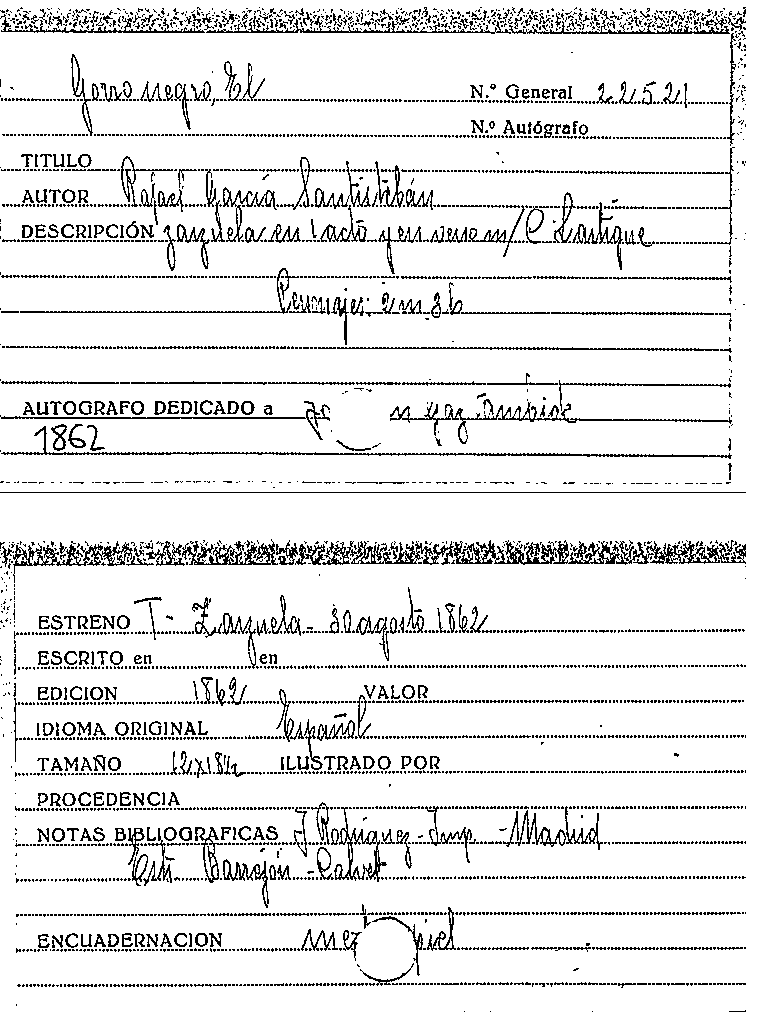 Gorro negro, El N.º General 22521
N.º Autógrafo
TITULO
AUTOR Rafael García Santisteban
DESCRIPCIÓN zarzuela en 1 acto y en verso m/ C. Lartigue
Personajes: 2 m. 3 h
AUTOGRAFO DEDICADO a
1862
ESTRENO T - Zarzuela - 30 agosto 1862
ESCRITO en en
EDICION 1862 VALOR
IDIOMA ORIGINAL Español
TAMAÑO ILUSTRADO POR
PROCEDENCIA
NOTAS BIBLIOGRAFICAS J Rodríguez - Imp. - Madrid
Estr. Barrejón - Calvet
ENCUADERNACION piel